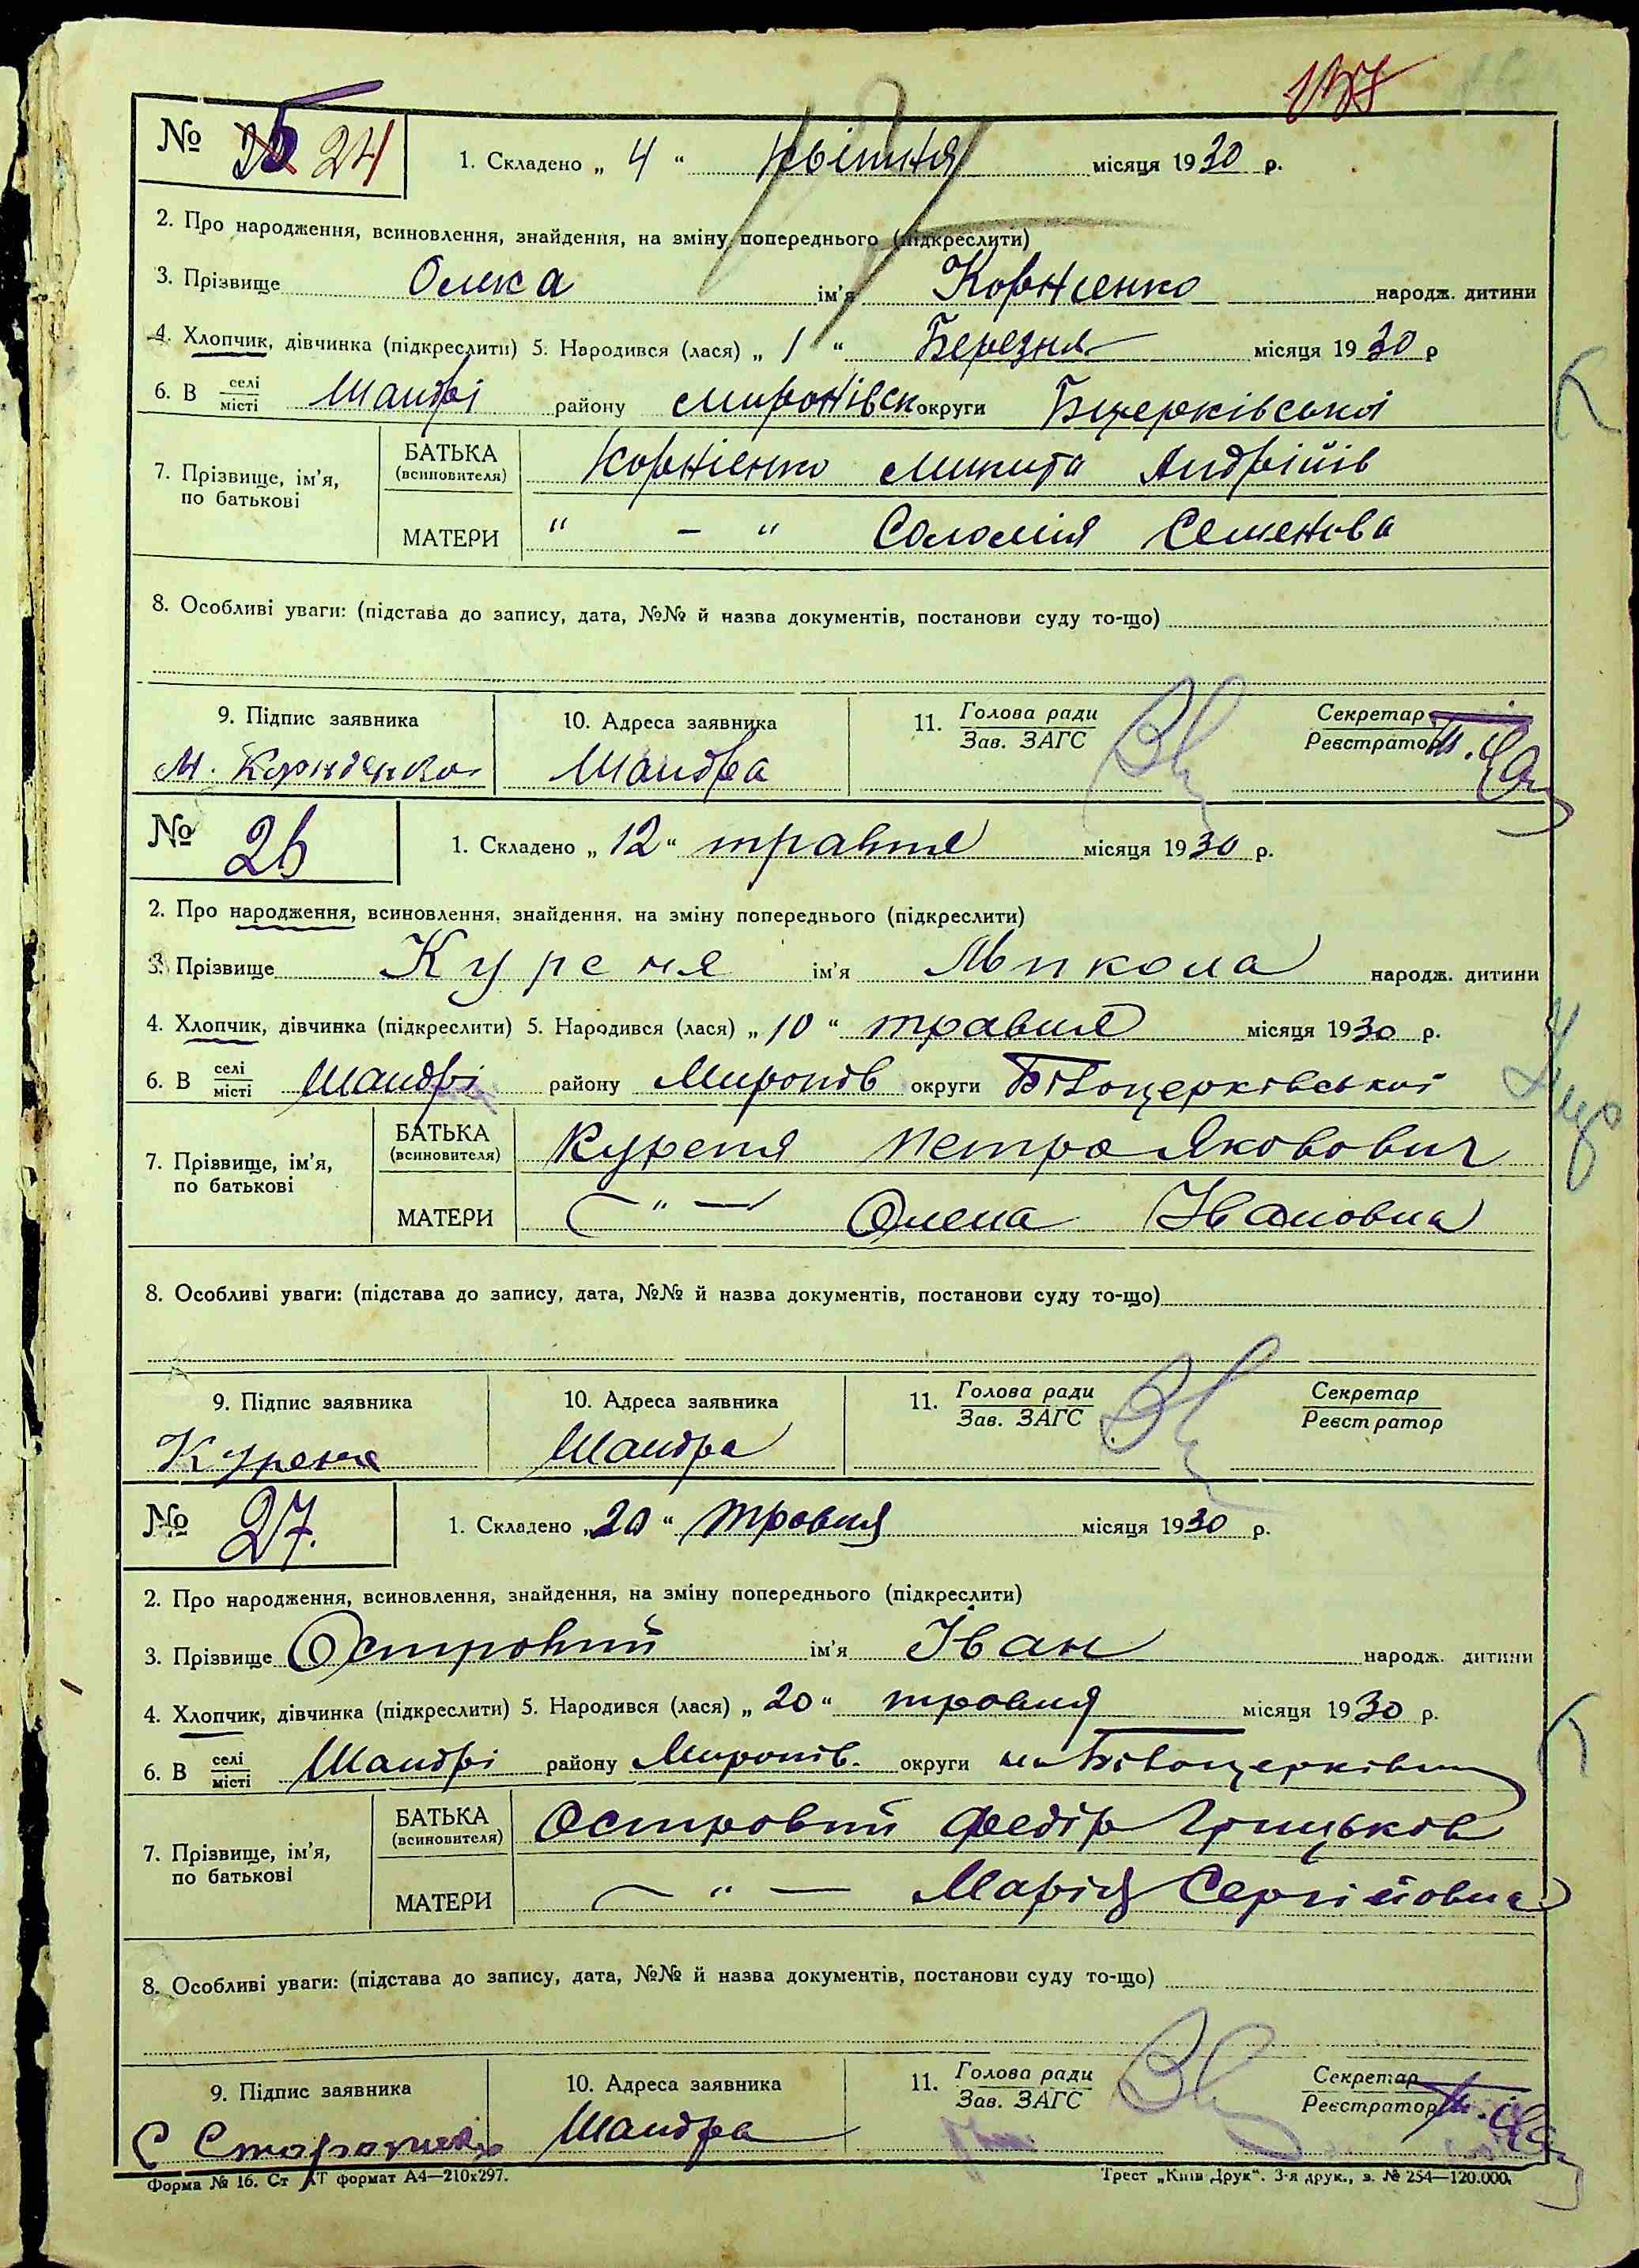 137
№ 25 24 1. Складено „ 4 “ Квітня місяця 1930 р.
2. Про народження, всиновлення, знайдення, на зміну попереднього (підкреслити)
3. Прізвище Олекса ім'я Корнієнко народж. дитини
4. Хлопчик, дівчинка (підкреслити) 5. Народився (лася) „ 1 “ Березня місяця 1930 р
6. В селі/місті Шандрі району Миронівск округи Бцерківської
7. Прізвище, ім'я, по батькові БАТЬКА (всиновителя) Корнієнко Микита Андріїв
МАТЕРИ “ – “ Соломія Семенова
8. Особливі уваги: (підстава до запису, дата, №№ й назва документів, постанови суду то-що)
9. Підпис заявника 10. Адреса заявника 11. Голова ради/Зав. ЗАГС Секретар/Реєстратор
М. Корнієнко Шандра
№ 26 1. Складено „ 12 “ травня місяця 1930 р.
2. Про народження, всиновлення, знайдення, на зміну попереднього (підкреслити)
3. Прізвище Куреня ім'я Микола народж. дитини
4. Хлопчик, дівчинка (підкреслити) 5. Народився (лася) „ 10 “ травня місяця 1930 р.
6. В селі/місті Шандрі району Миронів округи Білоцерківської
7. Прізвище, ім'я, по батькові БАТЬКА (всиновителя) Куреня Петро Якович
МАТЕРИ — “ — Олена Івановна
8. Особливі уваги: (підстава до запису, дата, №№ й назва документів, постанови суду то-що)
9. Підпис заявника 10. Адреса заявника 11. Голова ради/Зав. ЗАГС Секретар/Реєстратор
Куреня Шандра
№ 27. 1. Складено „ 20 “ травня місяця 1930 р.
2. Про народження, всиновлення, знайдення, на зміну попереднього (підкреслити)
3. Прізвище Островий ім'я Іван народж. дитини
4. Хлопчик, дівчинка (підкреслити) 5. Народився (лася) „ 20 “ травня місяця 1930 р.
6. В селі/місті Шандрі району Миронів. округи на Білоцерківщ
7. Прізвище, ім'я, по батькові БАТЬКА (всиновителя) Островий Федір Грицьков
МАТЕРИ — “ — Марія Сергійовна
8. Особливі уваги: (підстава до запису, дата, №№ й назва документів, постанови суду то-що)
9. Підпис заявника 10. Адреса заявника 11. Голова ради/Зав. ЗАГС Секретар/Реєстратор
Шандра
Форма № 16. Ст АТ формат А4—210х297. Трест „Київ Друк“. 3-я друк., з. № 254—120.000.